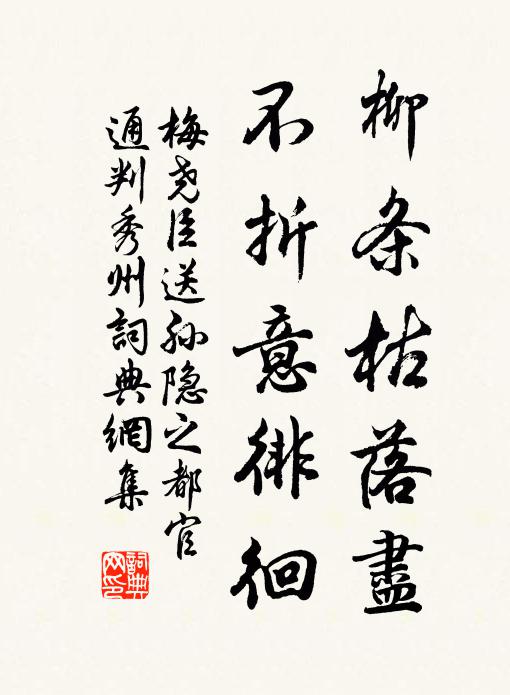 柳条枯落盡
不折意徘徊
梅尧臣送孙隐之都官
通判秀州詞典網集
詞典网印